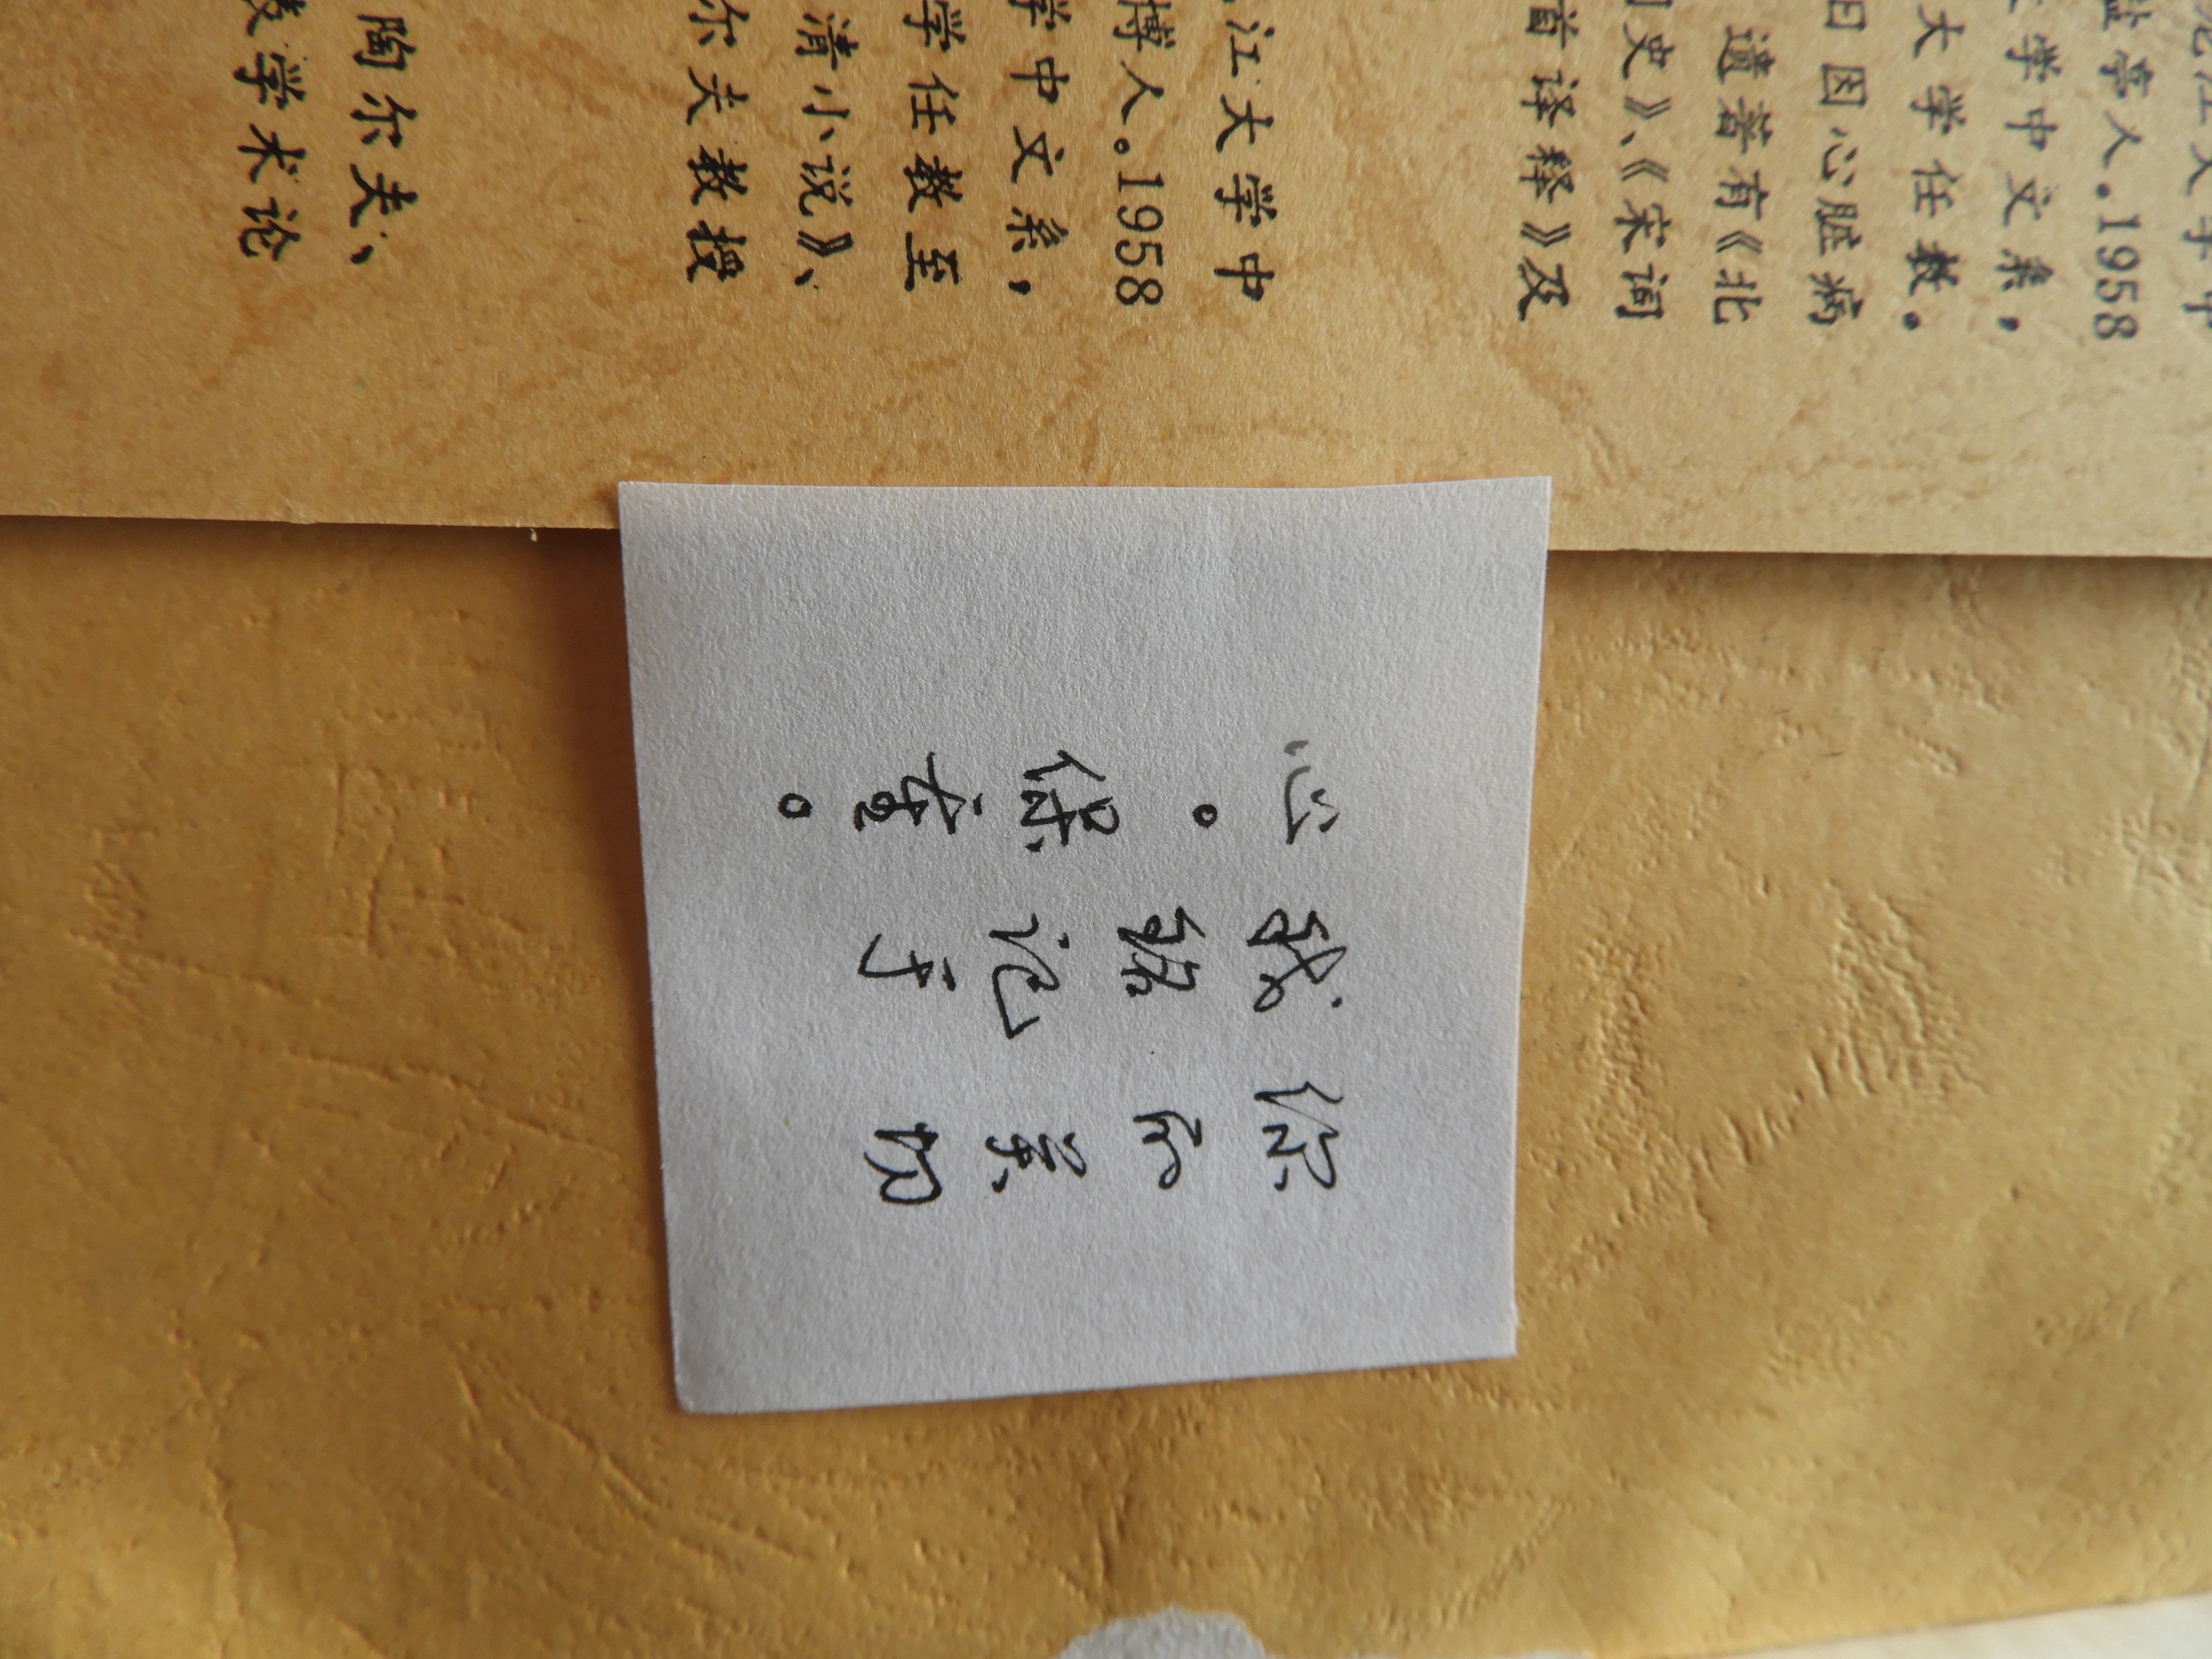 龙江大学中
盐亭人。1958
学中文系，
大学任教。
日因心脏病
遗著有《北
史》、《宋词
首译释》及
江大学中
博人。1958
学中文系，
学任教至
清小说》、
尔夫教授
陶尔夫、
表学术论
你的关切
我铭记于
心。保重。